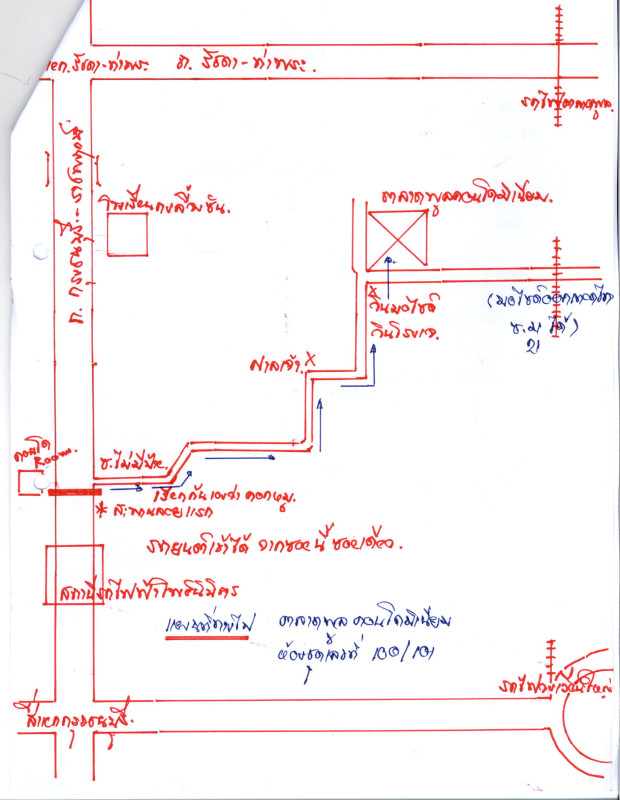 แยก.รัชดา-ท่าพระ
ถ. รัชดา-ท่าพระ.
รถไฟตลาดพลู.
ถ. กรุงธนบุรี-ราชพฤกษ์
โรงเรียน
ตลาดพลูคอนโดมิเนียม.
X
วินมอไซด์
วินโรงเจ.
ศาลเจ้า. X
คอนโด
Room.
ซ.ไม่มีป้าย.
เรียกกันเองว่า
* สะพานลอยแรก
รถยนต์เข้าได้ จากซอยนี้ ซอยเดียว.
สถานีรถไฟฟ้าโพธินิมิตร
แผนที่ทางไป ตลาดพลู คอนโดมิเนียม
ห้องชุดเลขที่ 100/101
รถไฟวงเวียนใหญ่
สี่แยกกรุงธนบุรี.